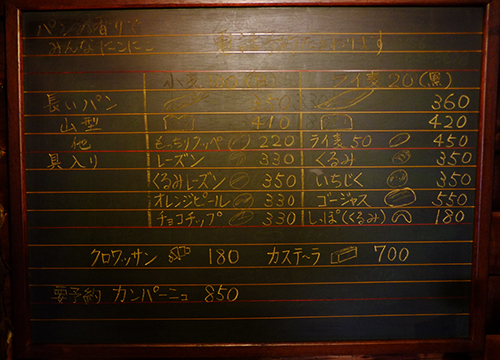 パンがあり
みんなにこにこ
小麦 ライ麦20(黒)
長いパン 330 360
山型 410 420
他 もっちりクッペ 220 ライ麦50 450
具入り レーズン 330 くるみ 350
くるみレーズン 350 いちじく 350
オレンジピール 330 ゴージャス 550
チョコチップ 330 しっぽ(くるみ) 180
クロワッサン 180 カステ〜ラ 700
要予約 カンパーニュ 850